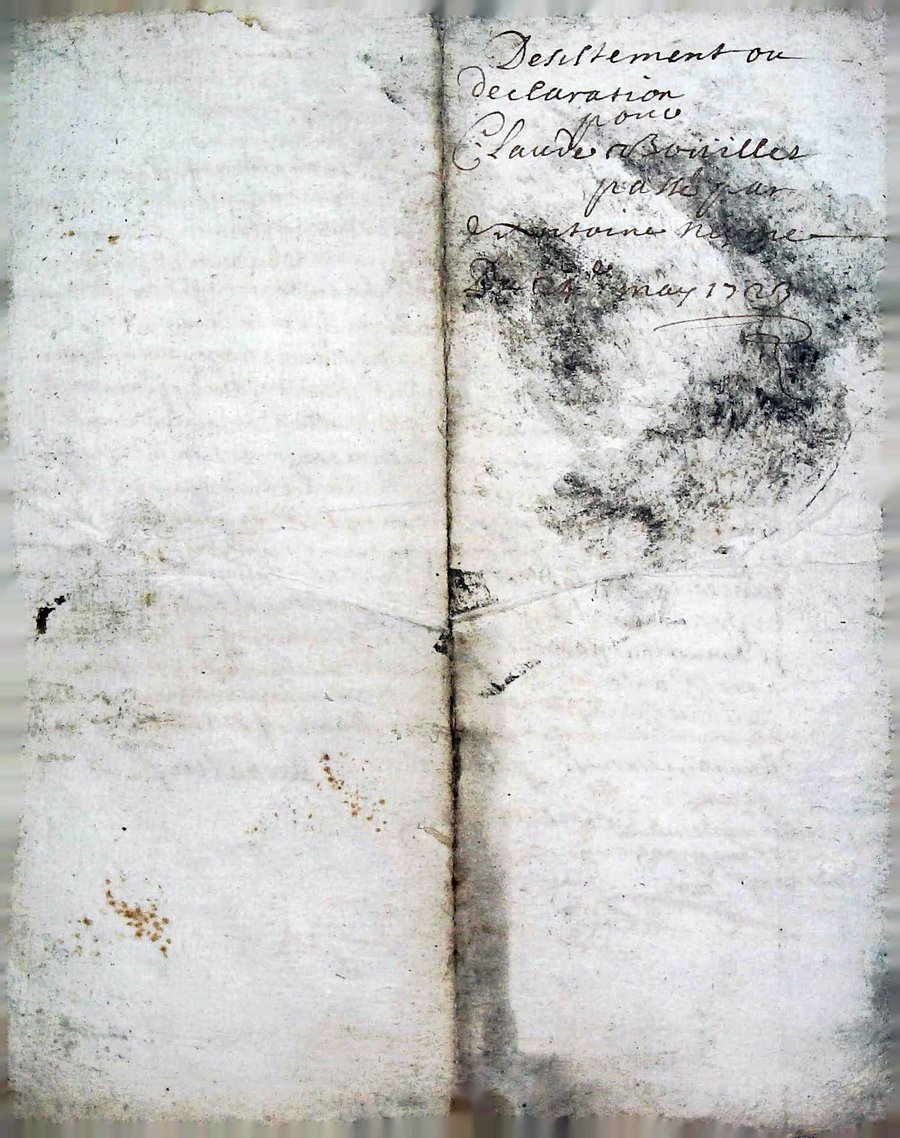 Desistement ou
declaration
pour
Claude Bouillet
passé par
Antoine
Du 24e may 1723